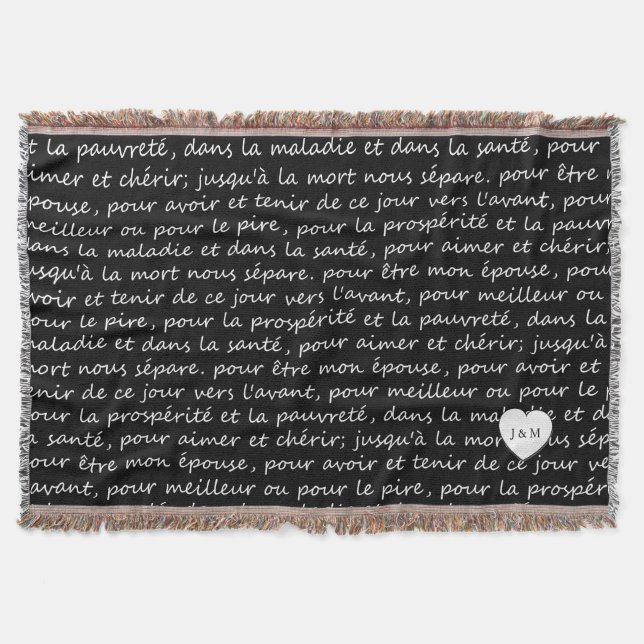 et la pauvreté, dans la maladie et dans la santé, pour
aimer et chérir; jusqu'à la mort nous sépare. pour être
épouse, pour avoir et tenir de ce jour vers l'avant, pour
meilleur ou pour le pire, pour la prospérité et la pauvre
dans la maladie et dans la santé, pour aimer et chérir;
jusqu'à la mort nous sépare. pour être mon épouse, pou
avoir et tenir de ce jour vers l'avant, pour meilleur ou
pour le pire, pour la prospérité et la pauvreté, dans la
maladie et dans la santé, pour aimer et chérir; jusqu'à la
mort nous sépare. pour être mon épouse, pour avoir et
tenir de ce jour vers l'avant, pour meilleur ou pour le p
pour la prospérité et la pauvreté, dans la et da
la santé, pour aimer et chérir; jusqu'à la mort nous sép
J & M
pour être mon épouse, pour avoir et tenir de ce jour ve
l'avant, pour meilleur ou pour le pire, pour la prospéri